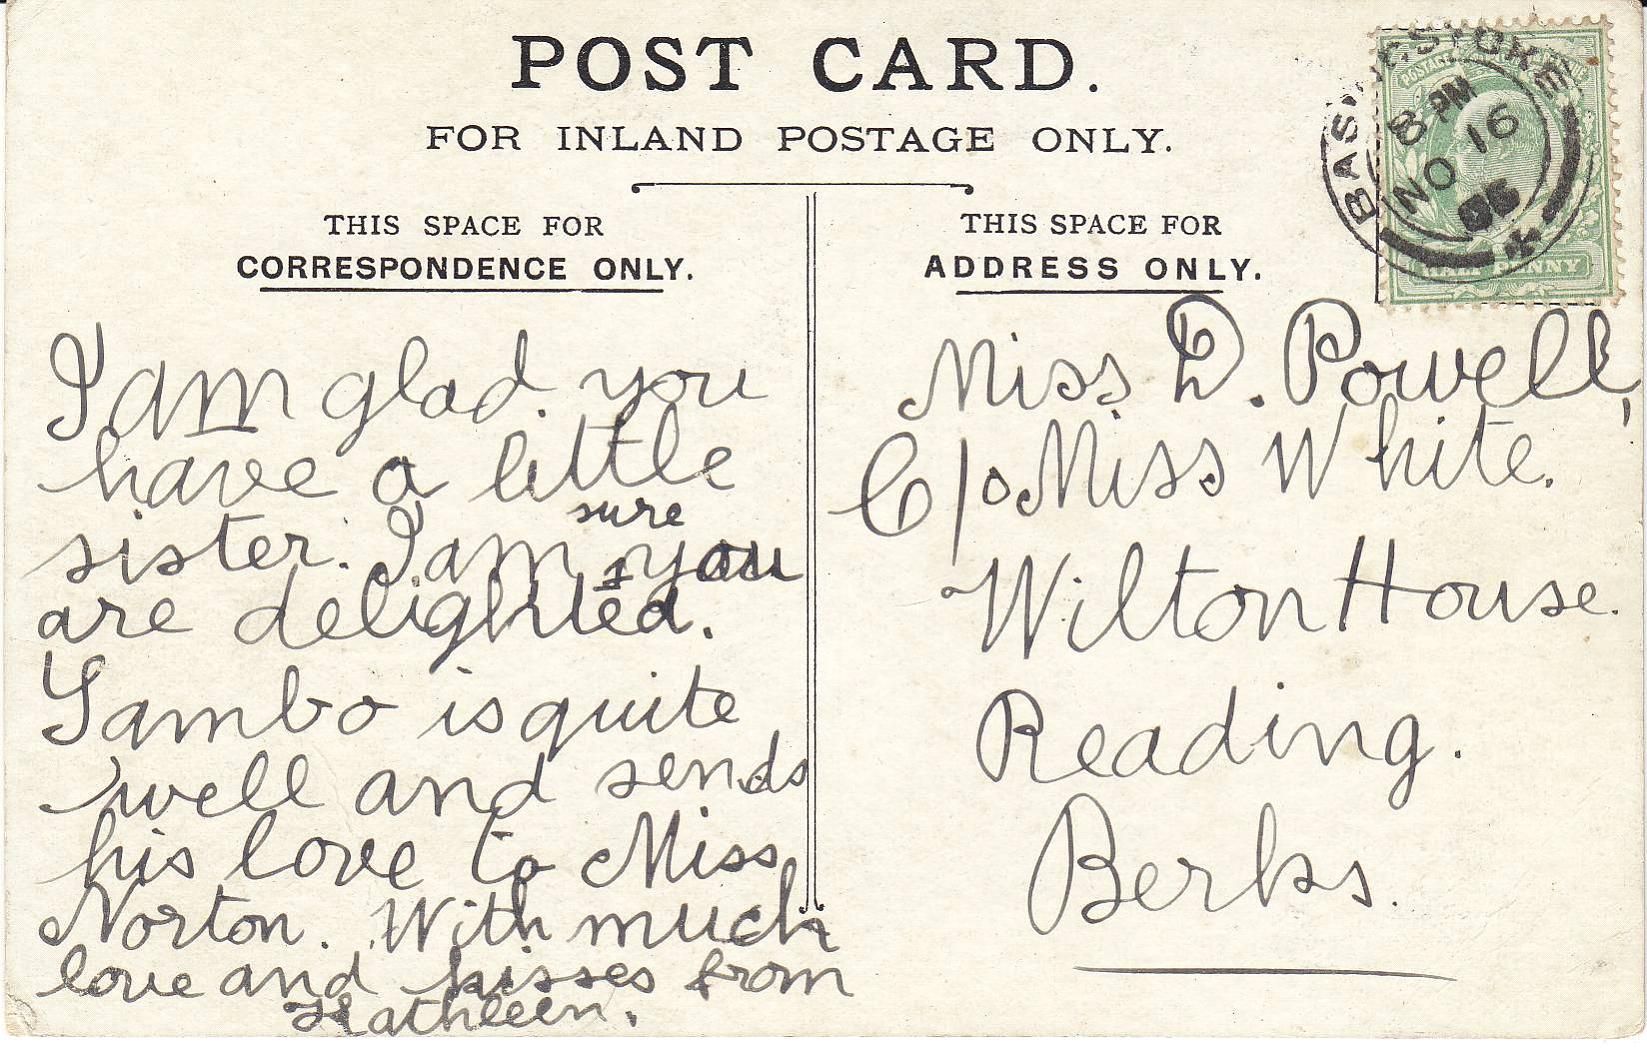 POST CARD.
FOR INLAND POSTAGE ONLY.
THIS SPACE FOR
CORRESPONDENCE ONLY.
I am glad you
have a little
sister. I am sure you
are delighted.
Sambo is quite
well and sends
his love to Miss
Norton. With much
love and kisses from
Kathleen.
THIS SPACE FOR
ADDRESS ONLY.
BASINGSTOKE
8 PM
NO 16
HALF PENNY
Miss D. Powell,
C/o Miss White.
Wilton House.
Reading.
Berks.